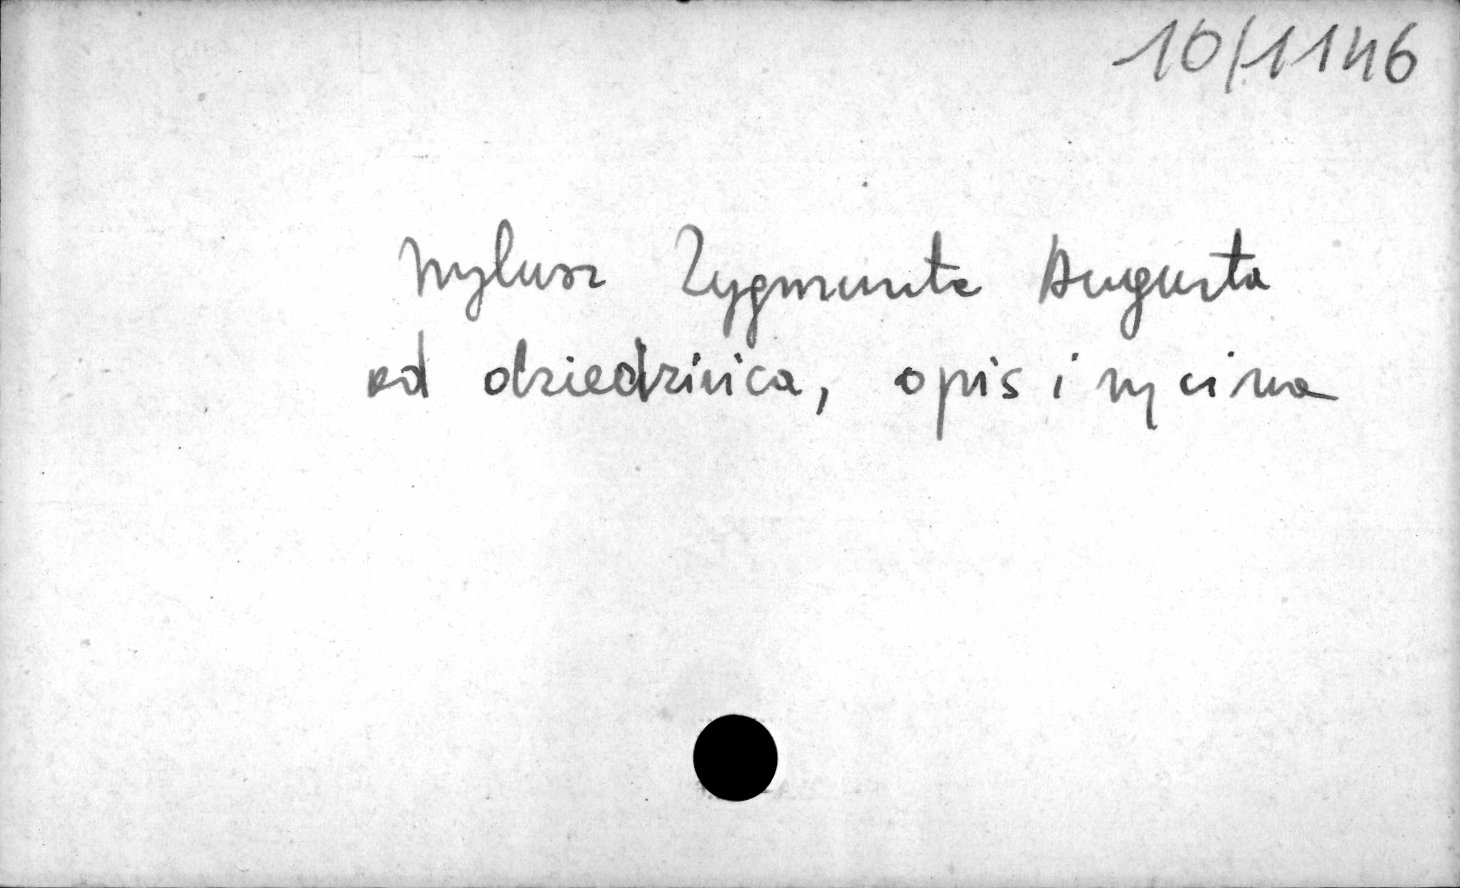 10/1146
Wylusz Zygmunta Augusta
od dziedzińca, opis i rycina